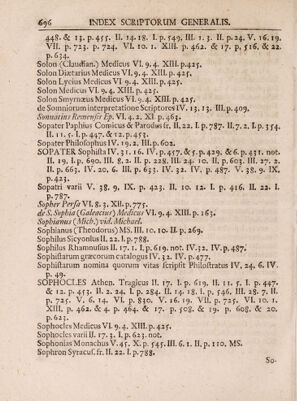 696 INDEX SCRIPTORUM GENERALIS.
448. & 13. p. 455. II. 14. 18. I. p. 549. III. 1. 3. II. p. 24. V. 16. 19.
VII. p. 723. p. 724. VI. 10. 1. XIII. p. 462. & 17. p, 516, & 22.
p. 634.
Solon (Claudian.) Medicus VI. 9. 4. XIII. p. 425.
Solon Dictarius Medicus VI. 9. 4. XIII. p. 425.
Solon Lycius Medicus VI. 9. 4. XIII. p. 425.
Solon Medicus VI. 9. 4. XIII. p. 425.
Solon Smyrnæus Medicus VI. 9. 4. XIII. p. 425.
de Somniorum interpretatione Scriptores IV. 13. 13. III. p. 409.
Sonnatius Remensis Ep. VI. 4. 2. XI. p. 463.
Sopater Paphius Comicus & Parodus fr. II. 22. I. p. 787. II. 7. 2. I. p. 354.
II. 11. 5. I. p. 447. & 12. p. 453.
Sopater Philosophus IV. 19. 2. III. p. 602.
SOPATER Sophista IV. 31. 16. IV. p. 457. & 5. p. 429. & 6. p. 431. not.
II. 19. I. p. 690. III. 8. 2. II. p. 228. III. 24. 10. II. p. 603. III. 27. 2.
II. p. 663. IV. 20. 6. III. p. 633. IV. 32. IV. p. 487. V. 38. 9. IX.
p. 423.
Sopatri varii V. 38. 9. IX. p. 423. II. 10. 12. I. p. 416. II. 22. I.
p. 787.
Sopher Persa VI. 8. 3. XII. p. 775.
de S. Sophia (Galeacius) Medicus VI. 9. 4. XIII. p. 163.
Sophianus (Mich.) vid. Michael.
Sophianus (Theodorus) MS. III. 10. 10. II. p. 269.
Sophilus Sicyonius II. 22. I. p. 788.
Sophilus Rhamnusius II. 17. 1. I. p. 619. not. IV. 32. IV. p. 487.
Sophistarum græcorum catalogus IV. 32. IV. p. 477.
Sophistarum nomina quorum vitas scripsit Philostratus IV. 24. 6. IV.
p. 49.
SOPHOCLES Athen. Tragicus II. 17. I. p. 619. II. 11. 5. I. p. 447.
& 12. p. 453. II. 2. 24. I. p. 284. II. 14. 18. I. p. 546. III. 28. 7. II.
p. 725. V. 6. 14. VI. p. 830. V. 16. 19. VII. p. 725. VI. 10. 1.
XIII. p. 462. & 4. p. 464. & 17. p. 508. & 19. p. 608. & 20.
p. 623.
Sophocles Medicus VI. 9. 4. XIII. p. 425.
Sophocles varii II. 17. 3. I. p. 623. not.
Sophonias Monachus V. 45. X. p. 545. III. 6. 1. II. p. 110. MS.
Sophron Syracus. fr. II. 22. I. p. 788.
So-